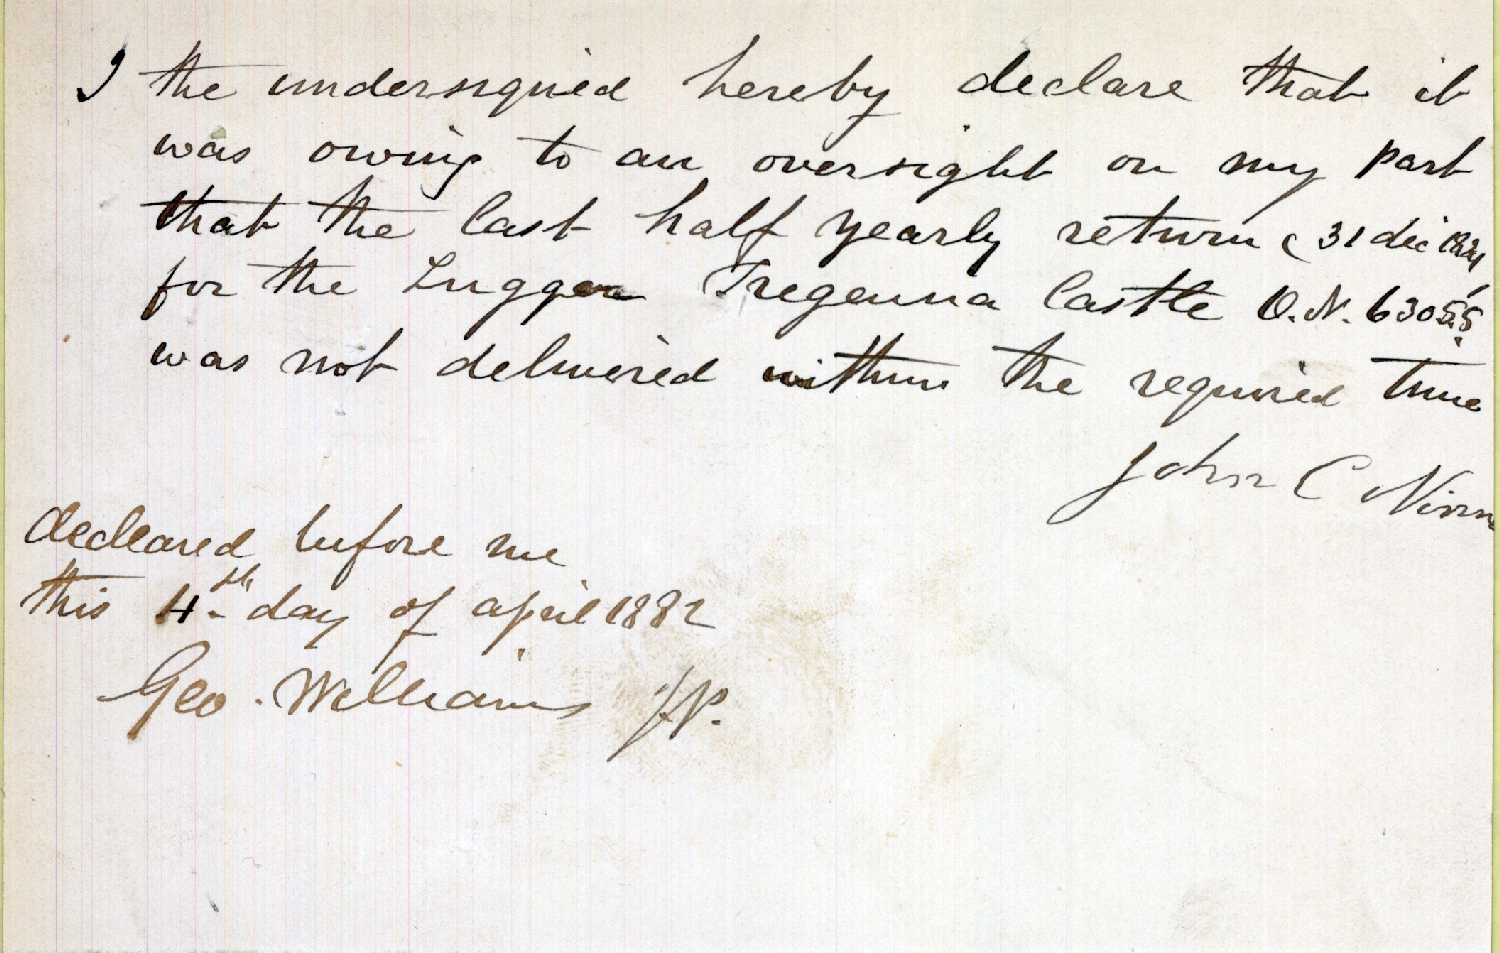 I the undersigned hereby declare that it
was owing to an oversight on my part
that the last half yearly return (31 dec
for the Lugger Tregenna Castle O.N. 63055
was not delivered within the required time
John C
decleared before me
this 4th day of april 1882
Geo. Williams J.P.